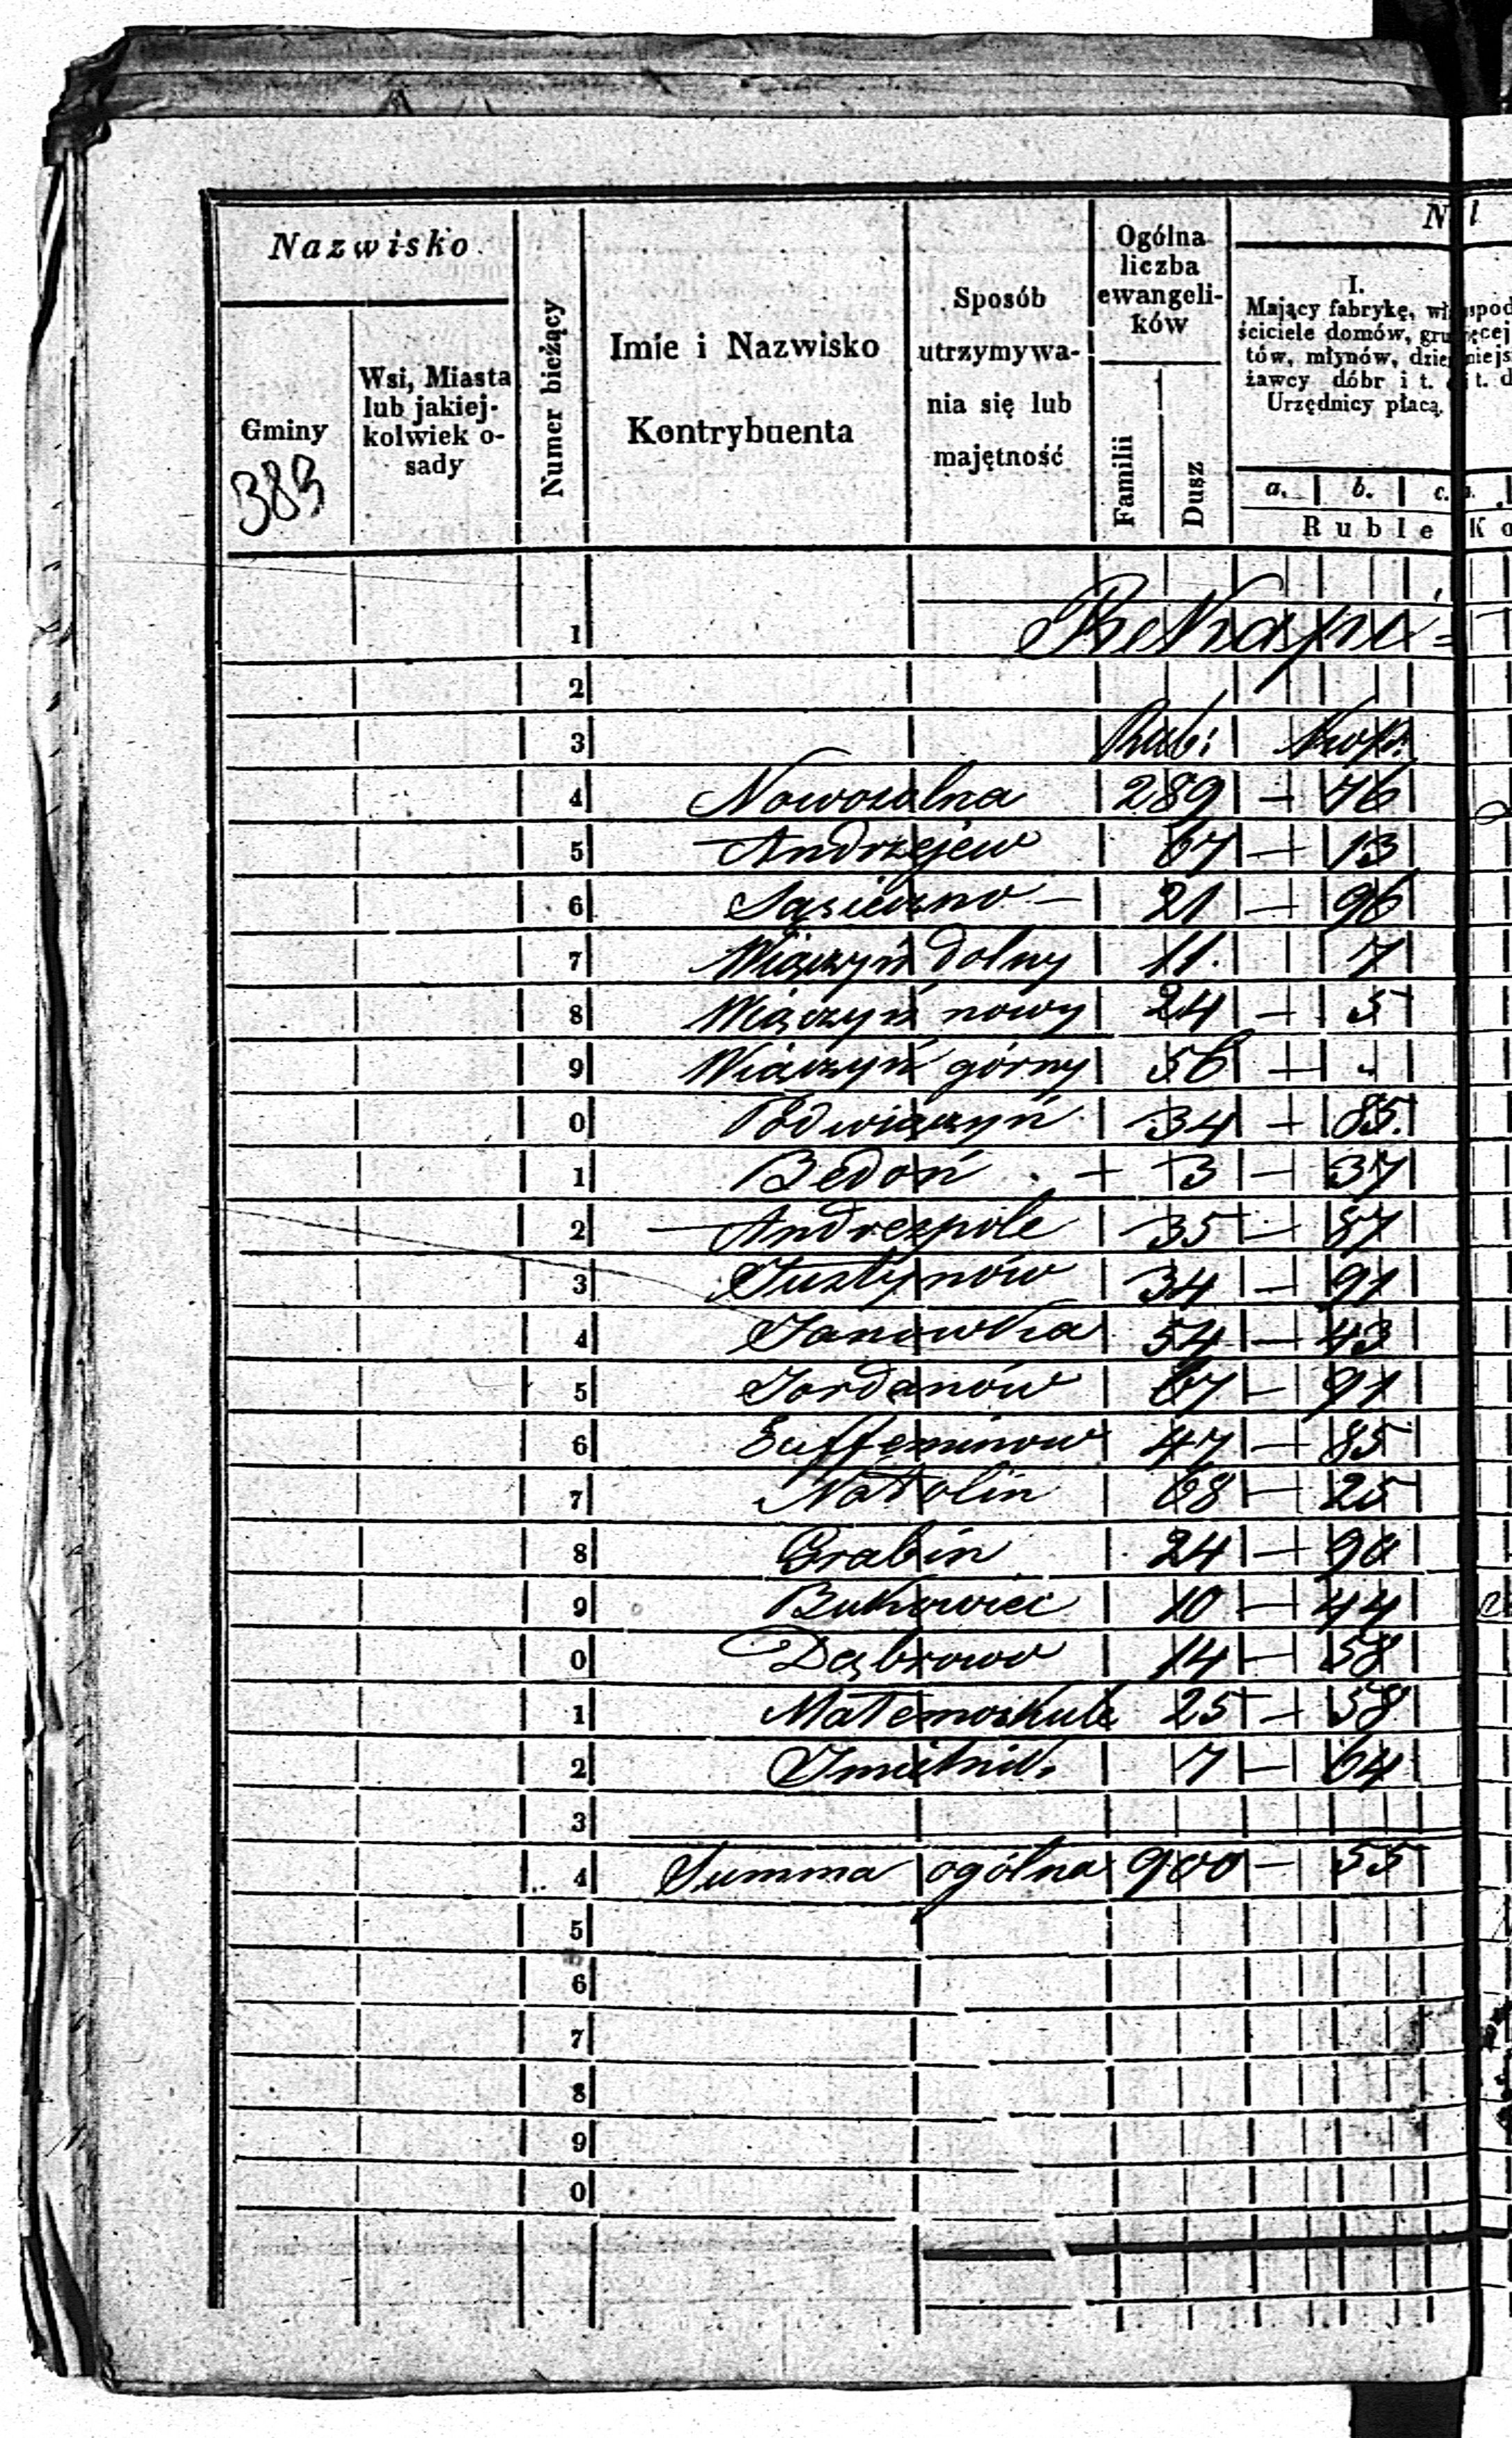 Nazwisko
Gminy
383
Wsi, Miasta
lub jakiej-
kolwiek o-
sady
Numer bieżący
Imie i Nazwisko
Kontrybuenta
Sposób
utrzymywa-
nia się lub
majętność
Ogólna
liczba
ewangeli-
ków
Familii
Dusz
N
I.
Mający fabrykę, wł
ściciele domów, gru
tów, młynów, dzie
żawcy dóbr i t.
Urzędnicy płacą.
a. b. c.
Ruble Ko
1 Rekapi=
2
3 Rub: Kop:
4 Nowosolna 289 — 76
5 Andrzejew 67 — 13
6 Sąsieczno — 21 — 96
7 Wiączyń dolny 11. 7
8 Wiączyń nowy 24 — 5
9 Wiączyń górny 56 — "
0 Podwiączyń 34 — 85.
1 Bedoń . — 3 — 37
2 Andrespole 35 — 87
3 Justynów 34 — 91
4 Janówka 54 — 43
5 Jordanów 67 — 91
6 Eufeminów 47 — 85
7 Natolin 68 — 25
8 Grabin 24 — 90
9 Bukowiec 10 — 44
0 Dąbrowa 14 — 58
1 25 — 58
2 7 — 64
3
4 Summa ogólna 900 — 55
5
6
7
8
9
0